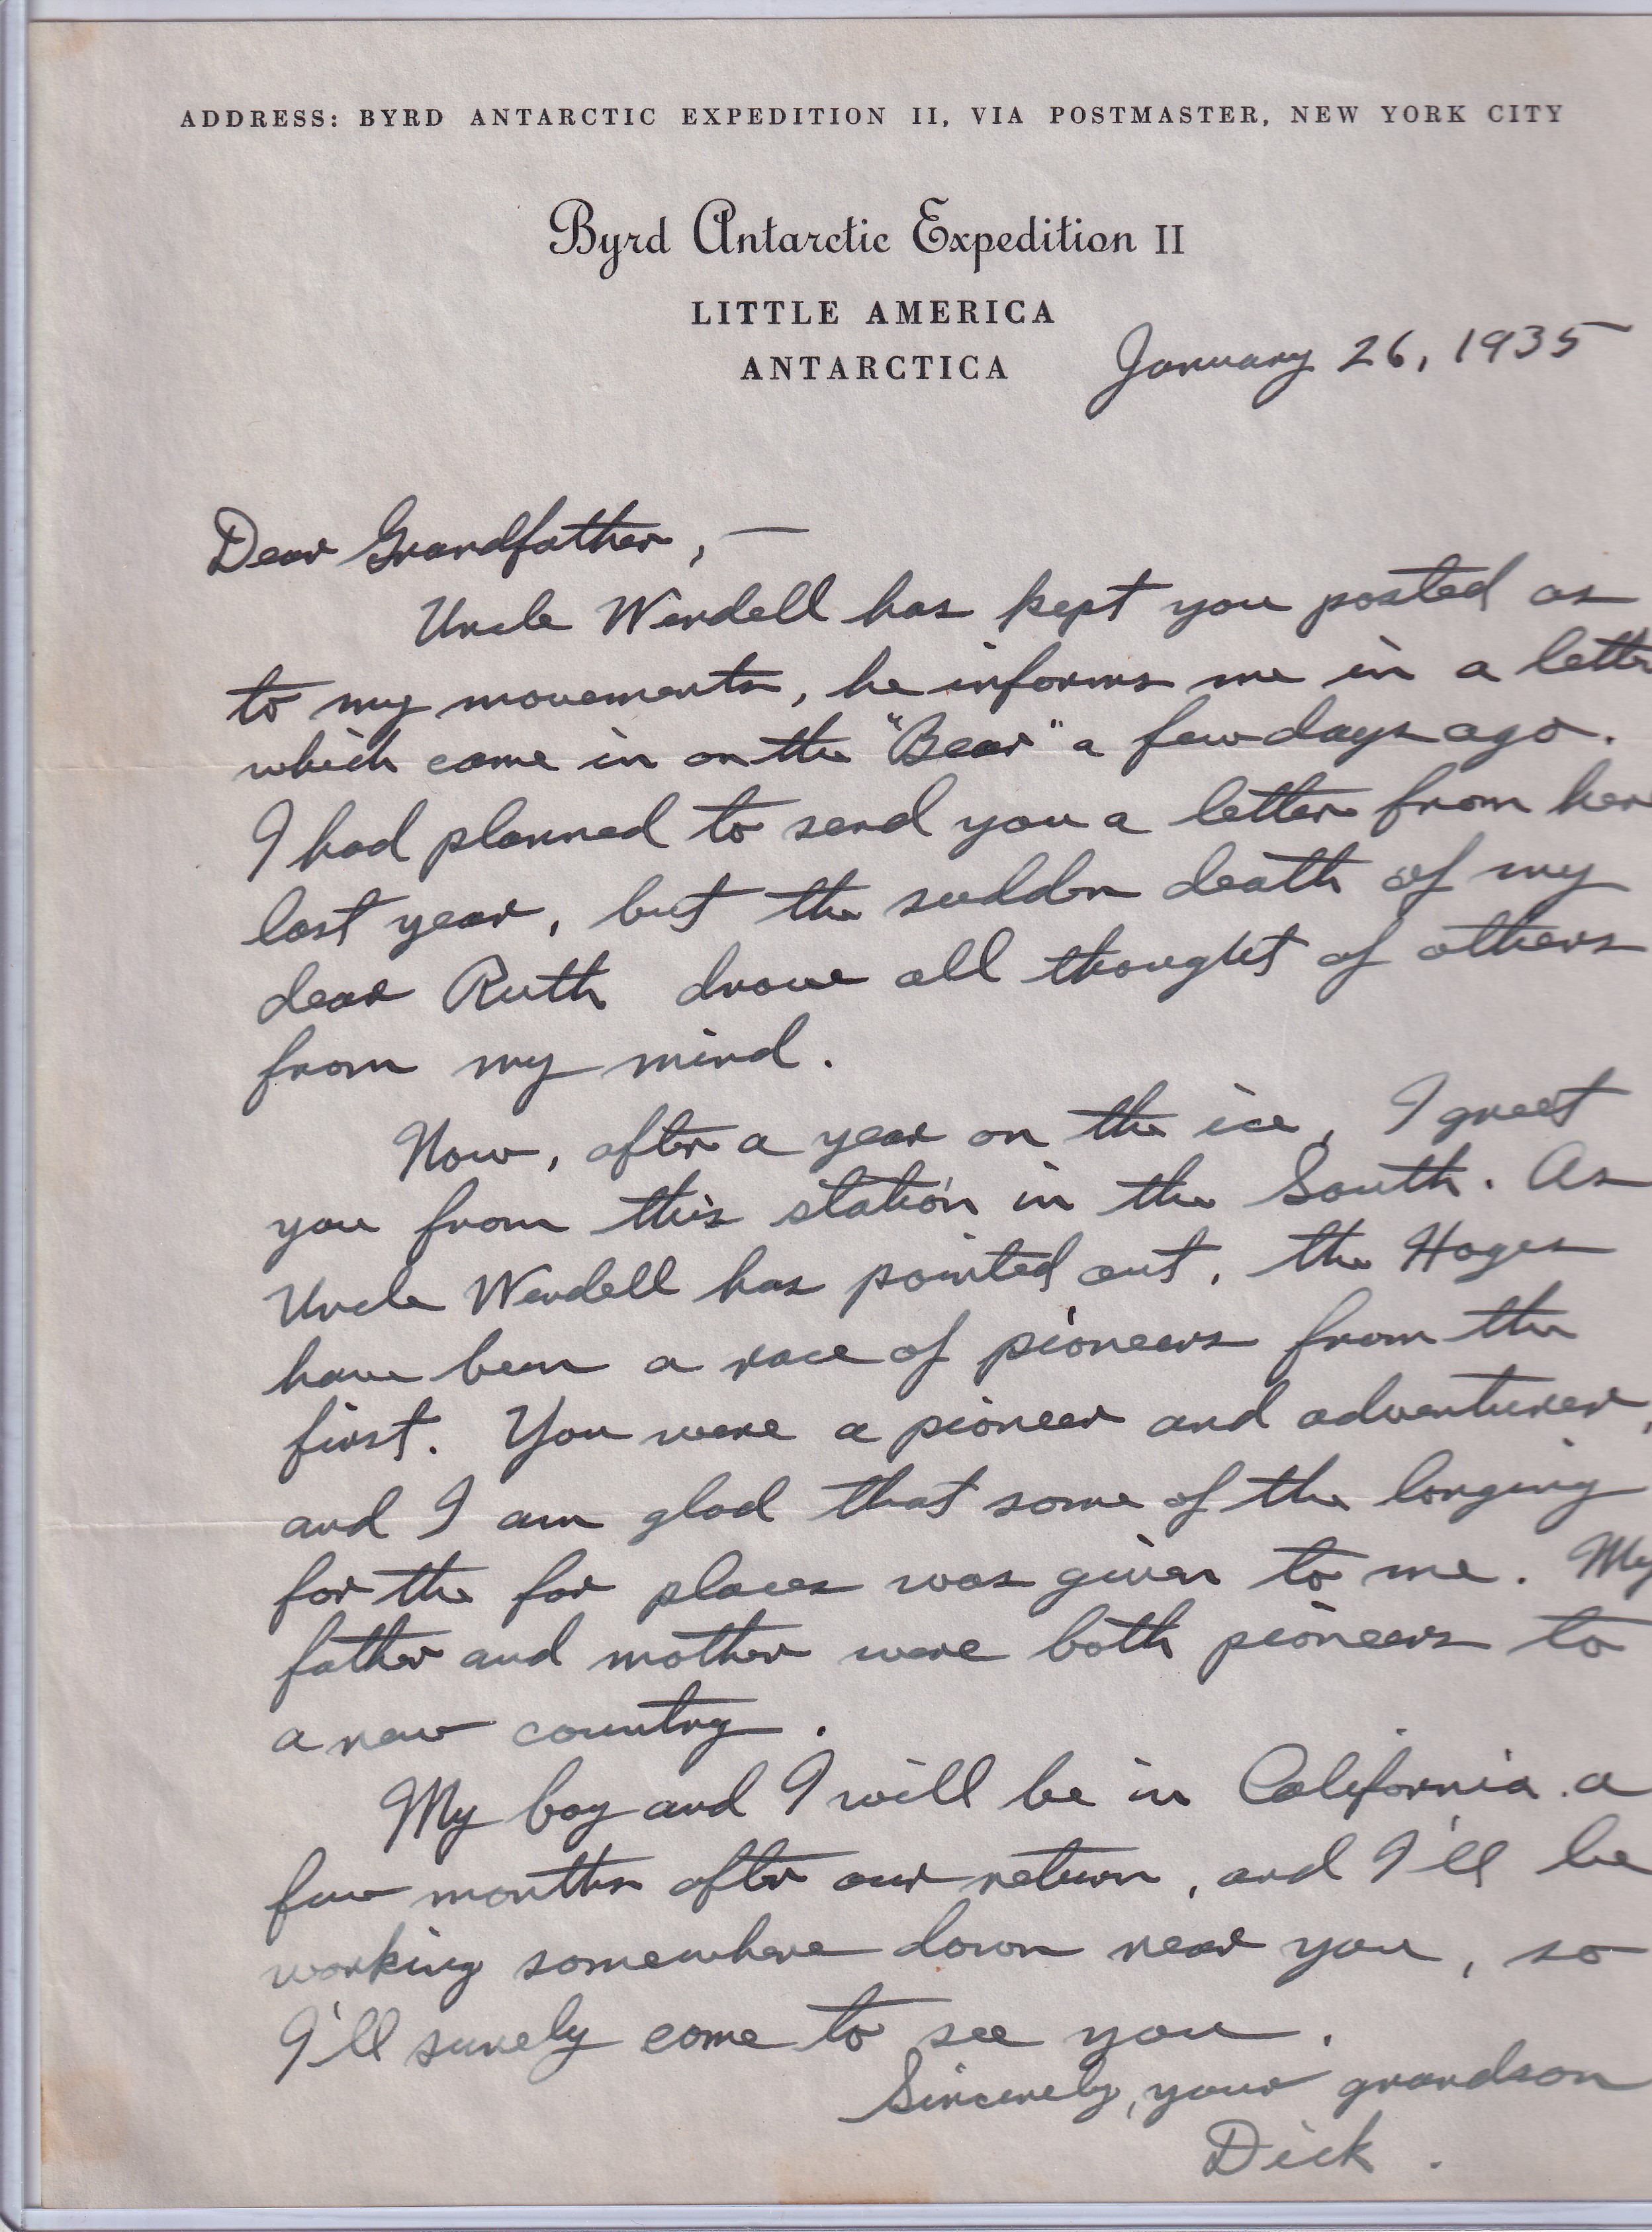 ADDRESS: BYRD ANTARCTIC EXPEDITION II, VIA POSTMASTER, NEW YORK CITY
Byrd Antarctic Expedition II
LITTLE AMERICA
ANTARCTICA
January 26, 1935
Dear Grandfather, —
Uncle Wendell has kept you posted as
to my movements, he informs me in a lette
which came in on the "Bear" a few days ago.
I had planned to send you a letter from her
last year, but the sudden death of my
dear Ruth drove all thought of others
from my mind.
Now, after a year on the ice, I greet
you from this station in the South. As
Uncle Wendell has pointed out, the Hoges
have been a race of pioneers from the
first. You were a pioneer and adventurer,
and I am glad that some of the longing
for the far places was given to me. My
father and mother were both pioneers to
a new country.
My boy and I will be in California a
few months after our return, and I'll be
working somewhere down near you, so
I'll surely come to see you.
Sincerely, your grandson
Dick.